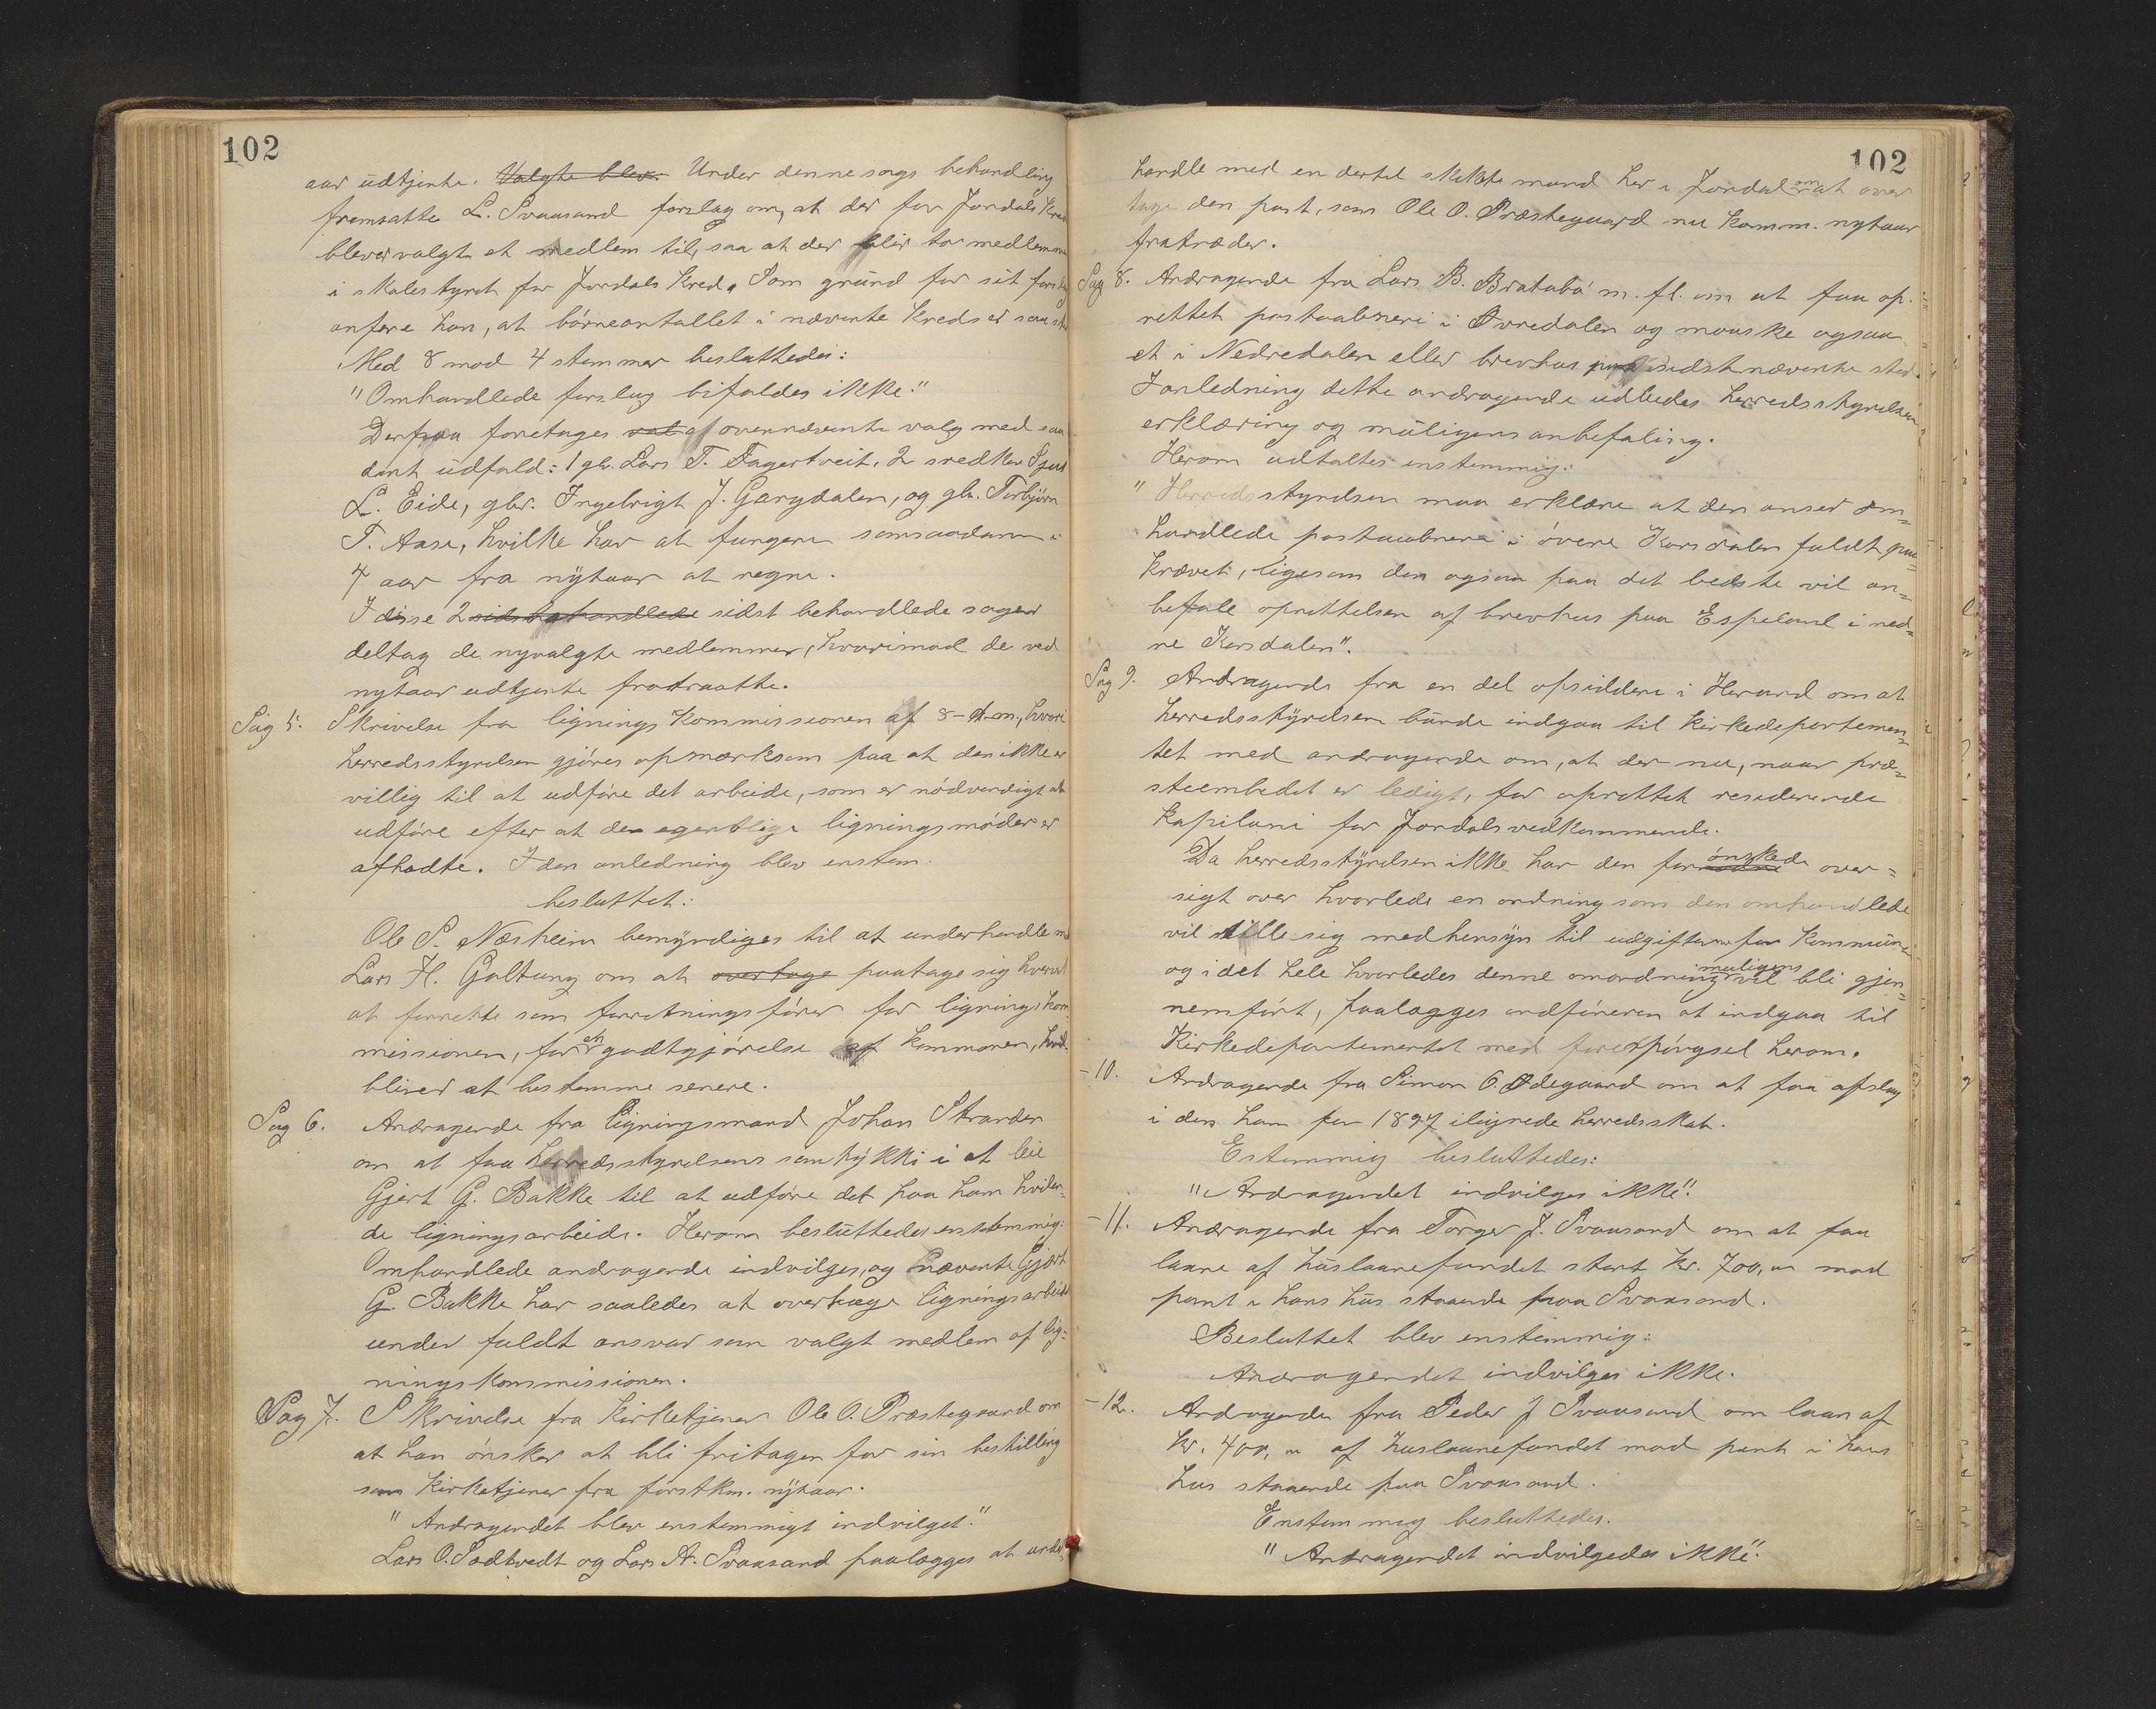 102
aar udtjente. Valgte blev. Under denne sags behandling
fremsatte L. Svaasand forslag om, at der for Jondals Kred
blever valgt et medlem til, saa at der blir to medlemmer
i skolestyret for Jondals Kred. Som grund for sit forslag
anføre han, at börneantallet i nævnte Kreds er saa
Med 8 mod 4 stemmer besluttedes:
"Omhandlede forslag bifaldes ikke."
Derpaa foretages val af ovennævnte valg med saa
dant udfald: 1 gb. Lars T. Fagertveit, 2 snedker Sjur
L. Eide, gbr. Ingebrigt J. Garydalen, og gb. Torbjörn
T. Aase, hvilke har at fungere som saadanne i
4 aar fra nytaar at regne.
I disse 2 sidst behandlede sidst behandlede sager
deltog de nyvalgte medlemmer, hvorimod de ved
nytaar udtjente fratraatte.
Sag 5. Skrivelse fra ligningskommissionen af 8- d.m., hvori
herredsstyrelsen gjöres opmærksom paa at den ikke er
villig til at udföre det arbeide, som er nödvendigt at
udföre efter at de egentlige ligningsmöder er
afholdte. I den anledning blev enstem.
besluttet:
Ole S. Næsheim bemyndiges til at underhandle med
Lars H. Galtung om at overtage paatage sig hvervet
at forrette som forretningsförer for ligningskom
missionen, for en godtgjörelse af kommunen, hvil.
bliver at bestemme senere.
Sag 6. Andragende fra ligningsmand Johan Strander
om at faa herredsstyrelsens samtykke i at leie
Gjert G. Bakke til at udföre det paa ham hvilen-
de ligningsarbeide. Herom besluttedes enstemmig:
Omhandlede andragende indvilges, og nævnte Gjert
G. Bakke har saaledes at overtage ligningsarbeidet
under fuldt ansvar som valgt medlem af lig-
ningskommissionen.
Sag 7. Skrivelse fra Kirketjener Ole O. Præstegaard om
at han önsker at bli fritagen for sin bestilling
som Kirketjener fra förstkm. nytaar.
"Andragendet blev enstemmigt indvilget."
Lars O. Sodtvedt og Lars A. Svaasand paalægges at under-
102
handle med en dertil skikket mand her i Jondal om at over
tage den post, som Ole O. Præstegaard nu komm. nytaar
fratræder.
Sag 8. Andragende fra Lars B. Bratabö m. fl. om at faa op-
rettet postaabneri i Övredalen og maaske ogsaa
et i Nedredalen eller brevhus paa sidstnævnte sted.
I anledning dette andragende udbedes herredsstyrelsens
erklæring og muligens anbefaling.
Herom udtaltes enstemmig:
"Herredsstyrelsen maa erklære at den anser om-
handlede postaabneri i övere Korsdalen fuldt paa-
krævet, ligesom den ogsaa paa det bedste vil an-
befale oprettelsen af brevhus paa Espeland i ned-
re Korsdalen".
Sag 9. Andragende fra en del opsiddere i Herand om at
herredsstyrelsen burde indgaa til kirkedepartemen-
tet med andragende om, at der nu, naar præ-
steembedet er ledigt, faar oprettet residerende
kapilani for Jondals vedkommende.
Da herredsstyrelsen ikke har den fornödne önskede over-
sigt over hvorledes en ordning som den omhandlede
vil stille sig med hensyn til udgifterne for kommune
og i det hele hvorledes denne omordning muligens vil bli gjen-
nemfört, paalægges ordföreren at indgaa til
Kirkedepartementet med forespörgsel herom.
- 10. Andragende fra Simon O. Ødegaard om at faa afslag
i den ham for 1897 ilignede herredsskat.
Estemmig besluttedes:
"Andragendet indvilges ikke".
- 11. Andragende fra Torger J. Svaasand om at faa
laane af huslaanefondet stort Kr. 700,00 mod
pant i hans hus staaende paa Svaasand.
Besluttet blev enstemmig:
Andragendet indvilges ikke.
- 12. Andragende fra Peder J Svaasand om laan af
Kr. 400,00 af huslaanefondet mod pant i hans
hus staaende paa Svaasand.
Enstemmig besluttedes.
"Andragendet indvilgedes ikke".